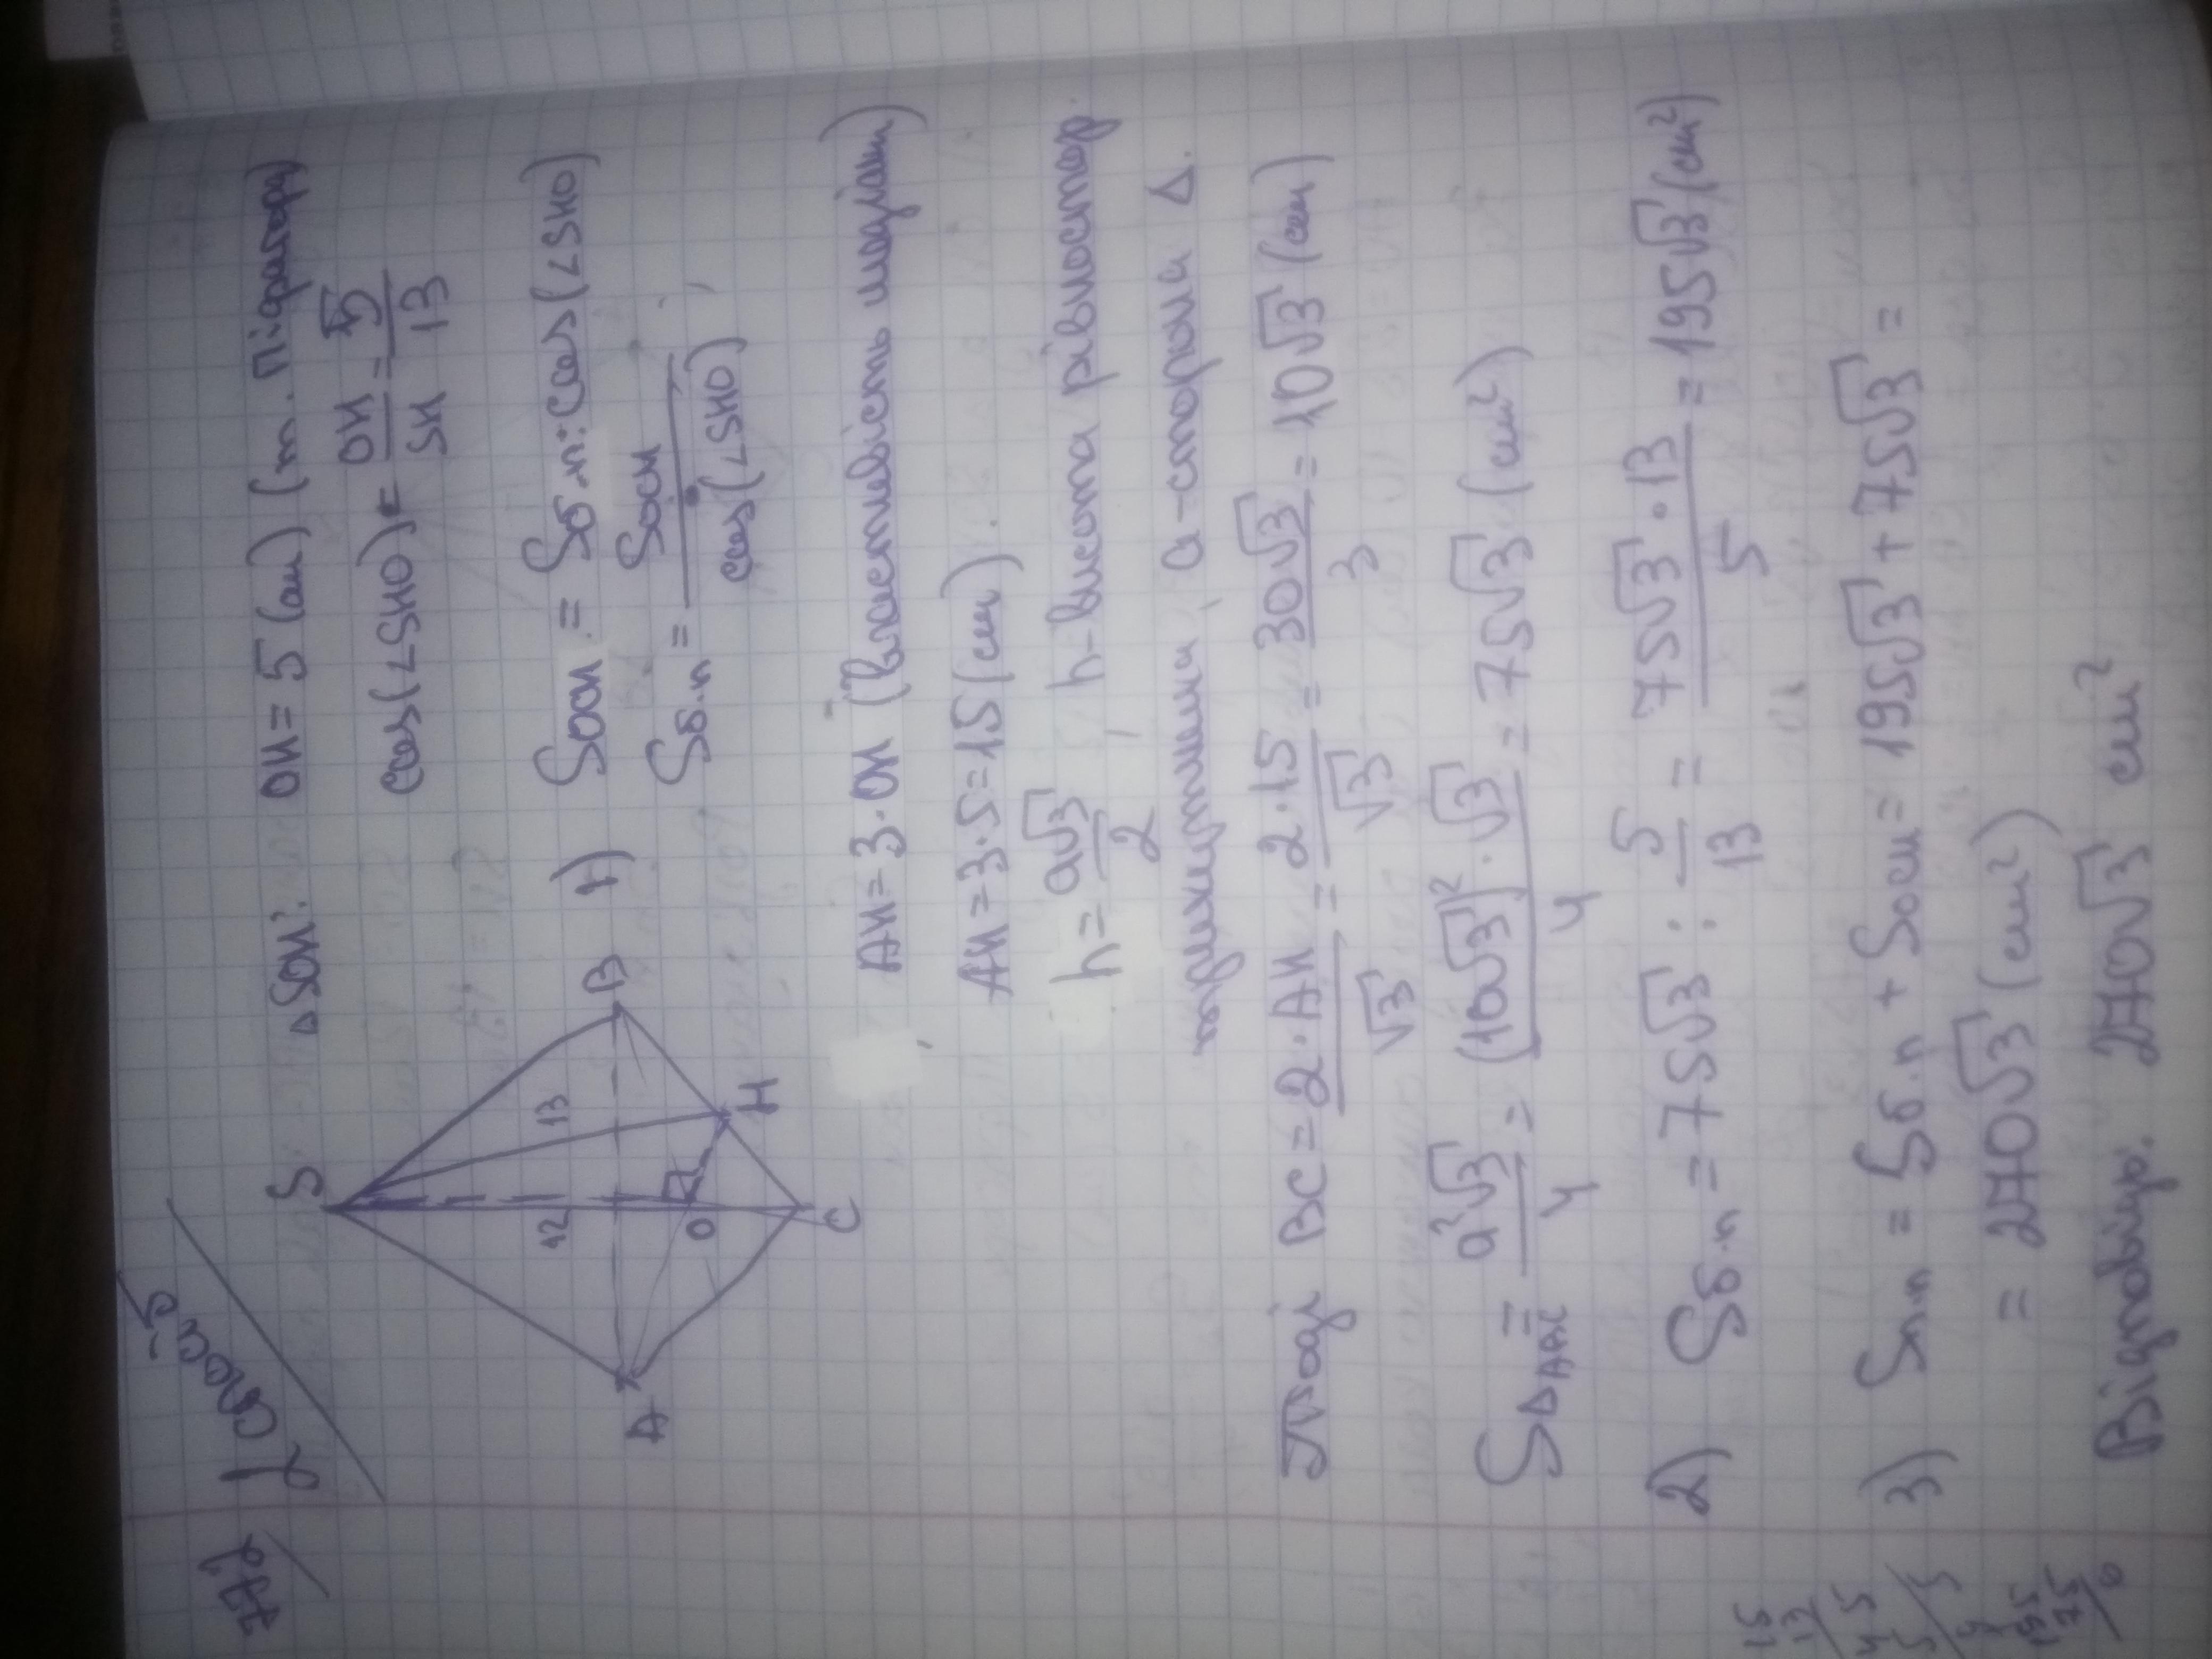 2 спосіб
S
13
12
A
B
O
H
C
ΔSOH:
OH = 5 (см) (т. Піфагора)
cos(∠SHO) = OH/SH = 5/13
1) Sосн = Sб.п · cos(∠SHO)
Sб.п = Sосн/cos(∠SHO);
AH = 3·OH (властивість медіан)
AH = 3·5 = 15 (см).
h = a√3/2, h-висота рівностор.
трикутника, a-сторона Δ.
Тоді BC = 2·AH/√3 = 2·15/√3 = 30√3/3 = 10√3 (см)
SΔABC = a²√3/4 = (10√3)²·√3/4 = 75√3 (см²)
2) Sб.п = 75√3 : 5/13 = 75√3·13/5 = 195√3 (см²)
3) Sп.п = Sб.п + Sосн = 195√3 + 75√3 =
= 270√3 (см²)
Відповідь: 270√3 см²
15
13
45
195
75